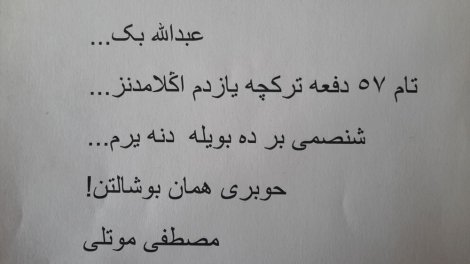 عبدالله بک...
تام ٥٧ دفعه ترکچه یازدم اڭلامدنز...
شنصمی بر ده بویله دنه یرم...
حوبری همان بوشالتن!
مصطفی موتلی